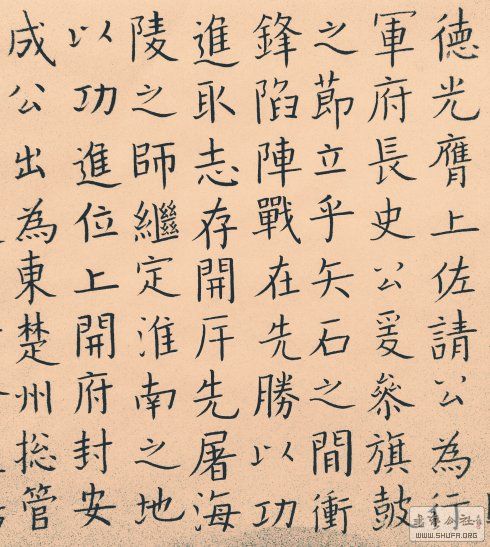 德光膺上佐請公為行
軍府長史公爰叅旗鼓
之節立乎矢石之間衝
鋒陷陣戰在先勝以功
進取志存開斥先屠海
陵之師繼定淮南之地
以功進位上開府封安
成公出為東楚州捴管
WWW.SHUFA.ORG